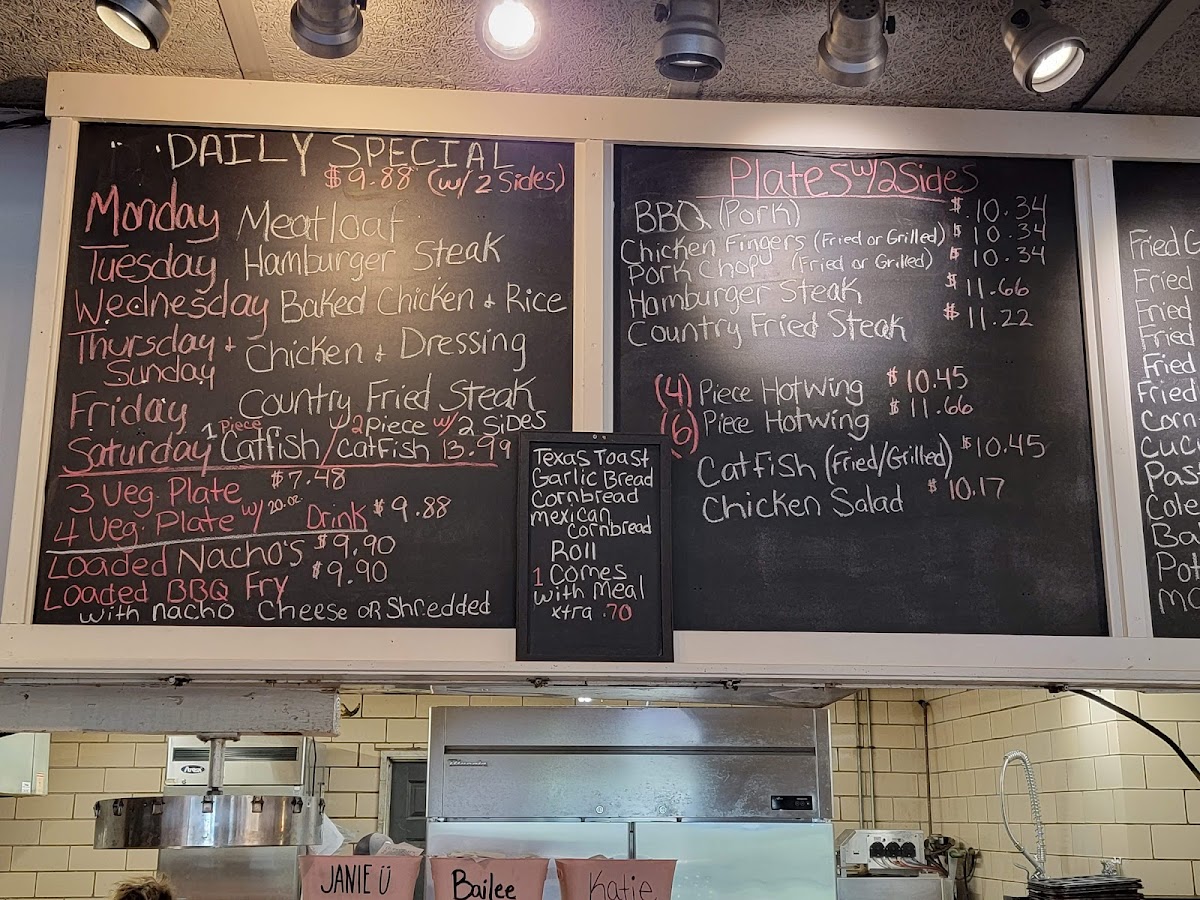 DAILY SPECIAL
$9.88 (w/2 Sides)
Monday Meatloaf
Tuesday Hamburger Steak
Wednesday Baked Chicken + Rice
Thursday + Sunday Chicken + Dressing
Friday Country Fried Steak
Saturday 1 Piece Catfish / 2 Piece w/ 2 SIDES Catfish 13.99
3 Veg. Plate $7.48
4 Veg. Plate w/ 20.oz. Drink $9.88
Loaded Nacho's $9.90
Loaded BBQ Fry $9.90
with nacho Cheese or Shredded
Texas Toast
Garlic Bread
Cornbread
mexican
cornbread
Roll
1 Comes
with Meal
xtra .70
Plates w/ 2 Sides
BBQ (Pork) $10.34
Chicken Fingers (Fried or Grilled) $10.34
Pork Chop (Fried or Grilled) $10.34
Hamburger Steak $11.66
Country Fried Steak $11.22
(4) Piece HotWing $10.45
(6) Piece Hotwing $11.66
Catfish (Fried/Grilled) $10.45
Chicken Salad $10.17
Fried
Fried
Fried
Fried
Fried
Fried
Corn
Cole
JANIE Ü
Bailee
Katie